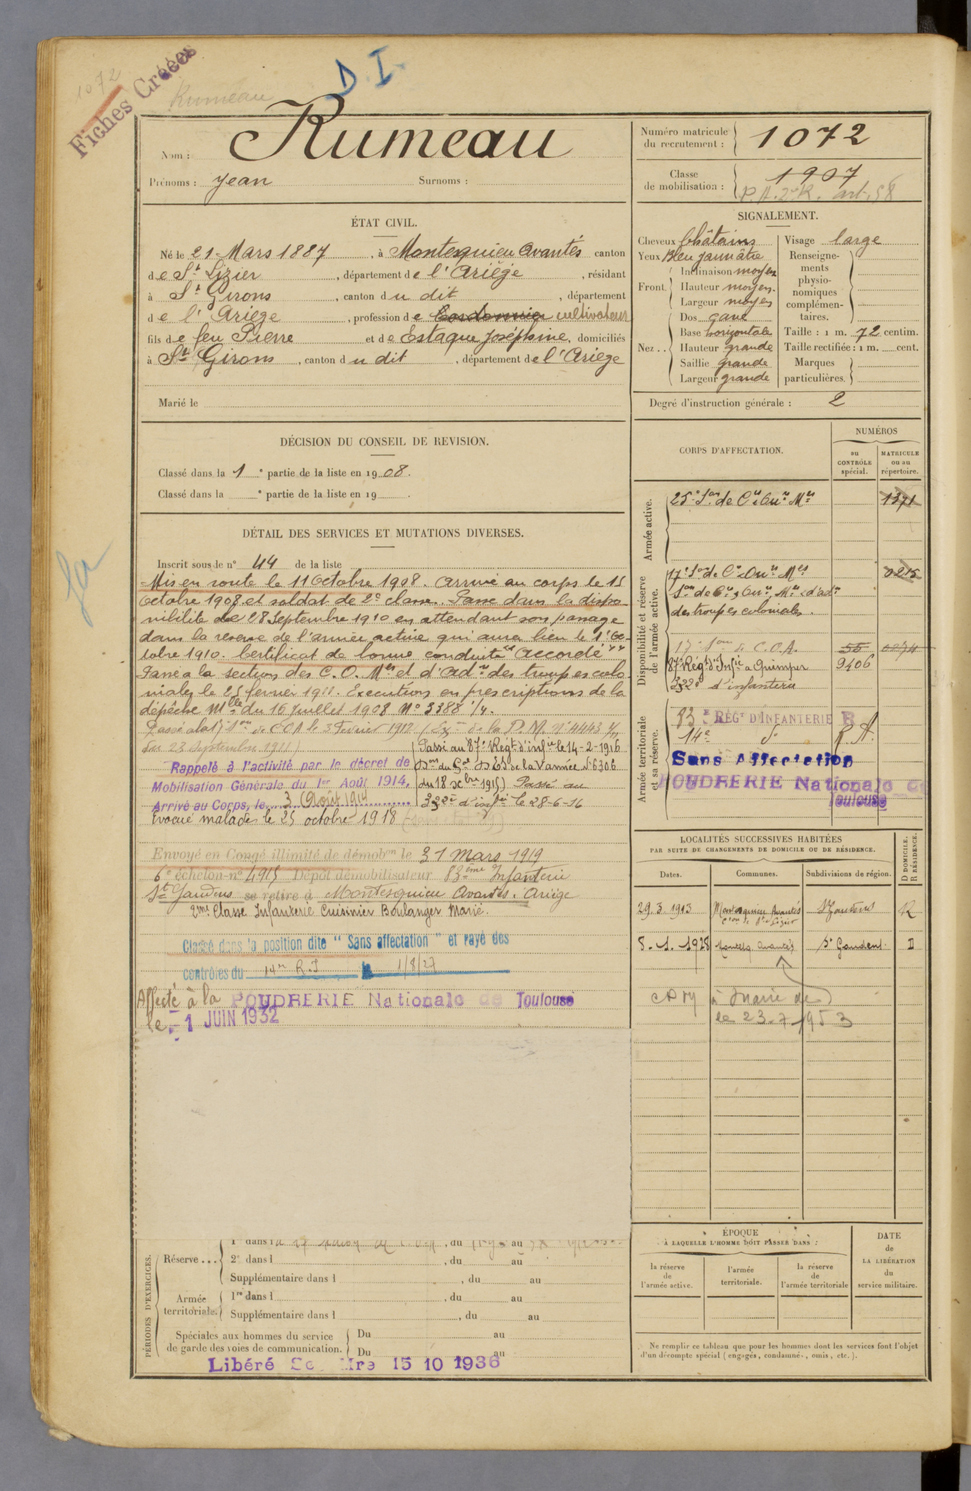 1072
Fiches Créées
Rumeau
D I.
Nom : Rumeau
Prénoms : Jean Surnoms :
ÉTAT CIVIL.
Né le 21 Mars 1887, à Montesquieu Avantés canton
de St Lizier, département de l'Ariège, résidant
à St Girons, canton du dit, département
de l'Ariège, profession de Cordonnier cultivateur
fils de feu Pierre et de Estaque Joséphine, domiciliés
à St Girons, canton du dit, département de l'Ariège
Marié le
DÉCISION DU CONSEIL DE REVISION.
Classé dans la 1e partie de la liste en 1908.
Classé dans la e partie de la liste en 19 .
DÉTAIL DES SERVICES ET MUTATIONS DIVERSES.
Inscrit sous le n° 44 de la liste
Mis en route le 11 Octobre 1908. Arrivé au corps le 15
Octobre 1908 et soldat de 2e classe. Passé dans la dispo-
nibilité le 28 Septembre 1910 en attendant son passage
dans la réserve de l'armée active qui aura lieu le 1er Oc-
tobre 1910. Certificat de bonne conduite "Accordé"
Passé à la section des C.O. Mres et d'Adon des troupes colo
niales le 25 février 1911. Exécution en prescriptions de la
dépêche Mlle du 16 Juillet 1908 No 3388 1/4.
le 5 Février 1912
du 23 Septembre 1911)
Passé au 87e Régt d'infie le 14-2-1916
No 6306
du 18 Xbre 1915) Passé au
322e d'infie le 28-6-16
Rappelé à l'activité par le décret de
Mobilisation Générale du 1er Août 1914.
Arrivé au Corps, le 3 Août 1914
Evacué malade le 25 octobre 1918
Envoyé en Congé illimité de démobon le 31 Mars 1919
6e échelon no 4915 Dépôt démobilisateur 83ème Infanterie
St Gaudens se retire à Montesquieu Avantés. Ariège
2me Classe Infanterie Cuisinier Boulanger Marié.
Classé dans la position dite "Sans affectation" et rayé des
contrôles du 14me R.I le 1/8/27
Affecté à la POUDRERIE Nationale de Toulouse
le 1 JUIN 1932
PÉRIODES D'EXERCICES.
Réserve ...
1re dans l , du au
2e dans l , du au
Supplémentaire dans l , du au
Armée territoriale.
1re dans l , du au
Supplémentaire dans l , du au
Spéciales aux hommes du service
de garde des voies de communication.
Du au
Du au
Libéré 15 10 1936
Numéro matricule
du recrutement : 1072
Classe
de mobilisation : 1907
art. 58
SIGNALEMENT.
Cheveux Châtains
Yeux Bleu jaunâtre
Front. Inclinaison moyen
Hauteur moyen.
Largeur moyen
Nez .. Dos cave
Base horizontale
Hauteur grande
Saillie grande
Largeur grande
Visage large
Renseigne-
ments
physio-
nomiques
complémen-
taires.
Taille : 1 m. 72 centim.
Taille rectifiée : 1 m. cent.
Marques
particulières.
Degré d'instruction générale : 2
CORPS D'AFFECTATION.
NUMÉROS
au
CONTRÔLE
spécial.
MATRICULE
ou au
répertoire.
Armée active.
25e Son de Cis Ouvrs Mres 1371
Disponibilité et réserve
de l'armée active.
17e Son de Cis Ouvrs Mres 0215
Son de Cis, Ouvrs, Mres & d'adon
des troupes coloniales.
17e Son de C.O.A. 56
87e Régt d'Infie à Quimper 9406
322e d'infanterie
Armée territoriale
et sa réserve.
83e RÉGt D'INFANTERIE R
14e d° R.A.
Sans Affectation
POUDRERIE Nationale de
Toulouse
LOCALITÉS SUCCESSIVES HABITÉES
PAR SUITE DE CHANGEMENTS DE DOMICILE OU DE RÉSIDENCE.
D DOMICILE.
R RÉSIDENCE.
Dates. Communes. Subdivisions de région.
29.3.1913 Montesquieu Avantés St Gaudens R
con de St Lizier
5.1.1928 Avantés St Gaudens D
à Mairie de
le 23-7-1953
ÉPOQUE
A LAQUELLE L'HOMME DOIT PASSER DANS :
la réserve
de
l'armée active.
l'armée
territoriale.
la réserve
de
l'armée territoriale
DATE
de
LA LIBÉRATION
du
service militaire.
Ne remplir ce tableau que pour les hommes dont les services font l'objet
d'un décompte spécial (engagés, condamnés, omis, etc.).